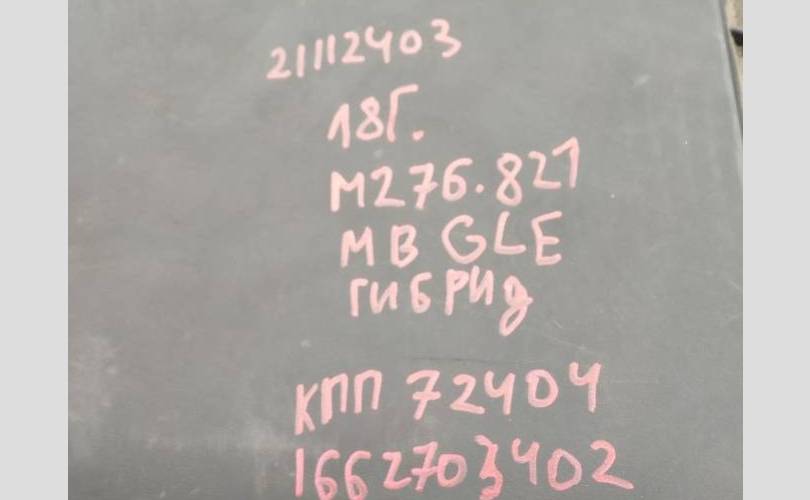 21112403
18г.
М276.821
MB GLE
гибрид
КПП 72404
1662703402